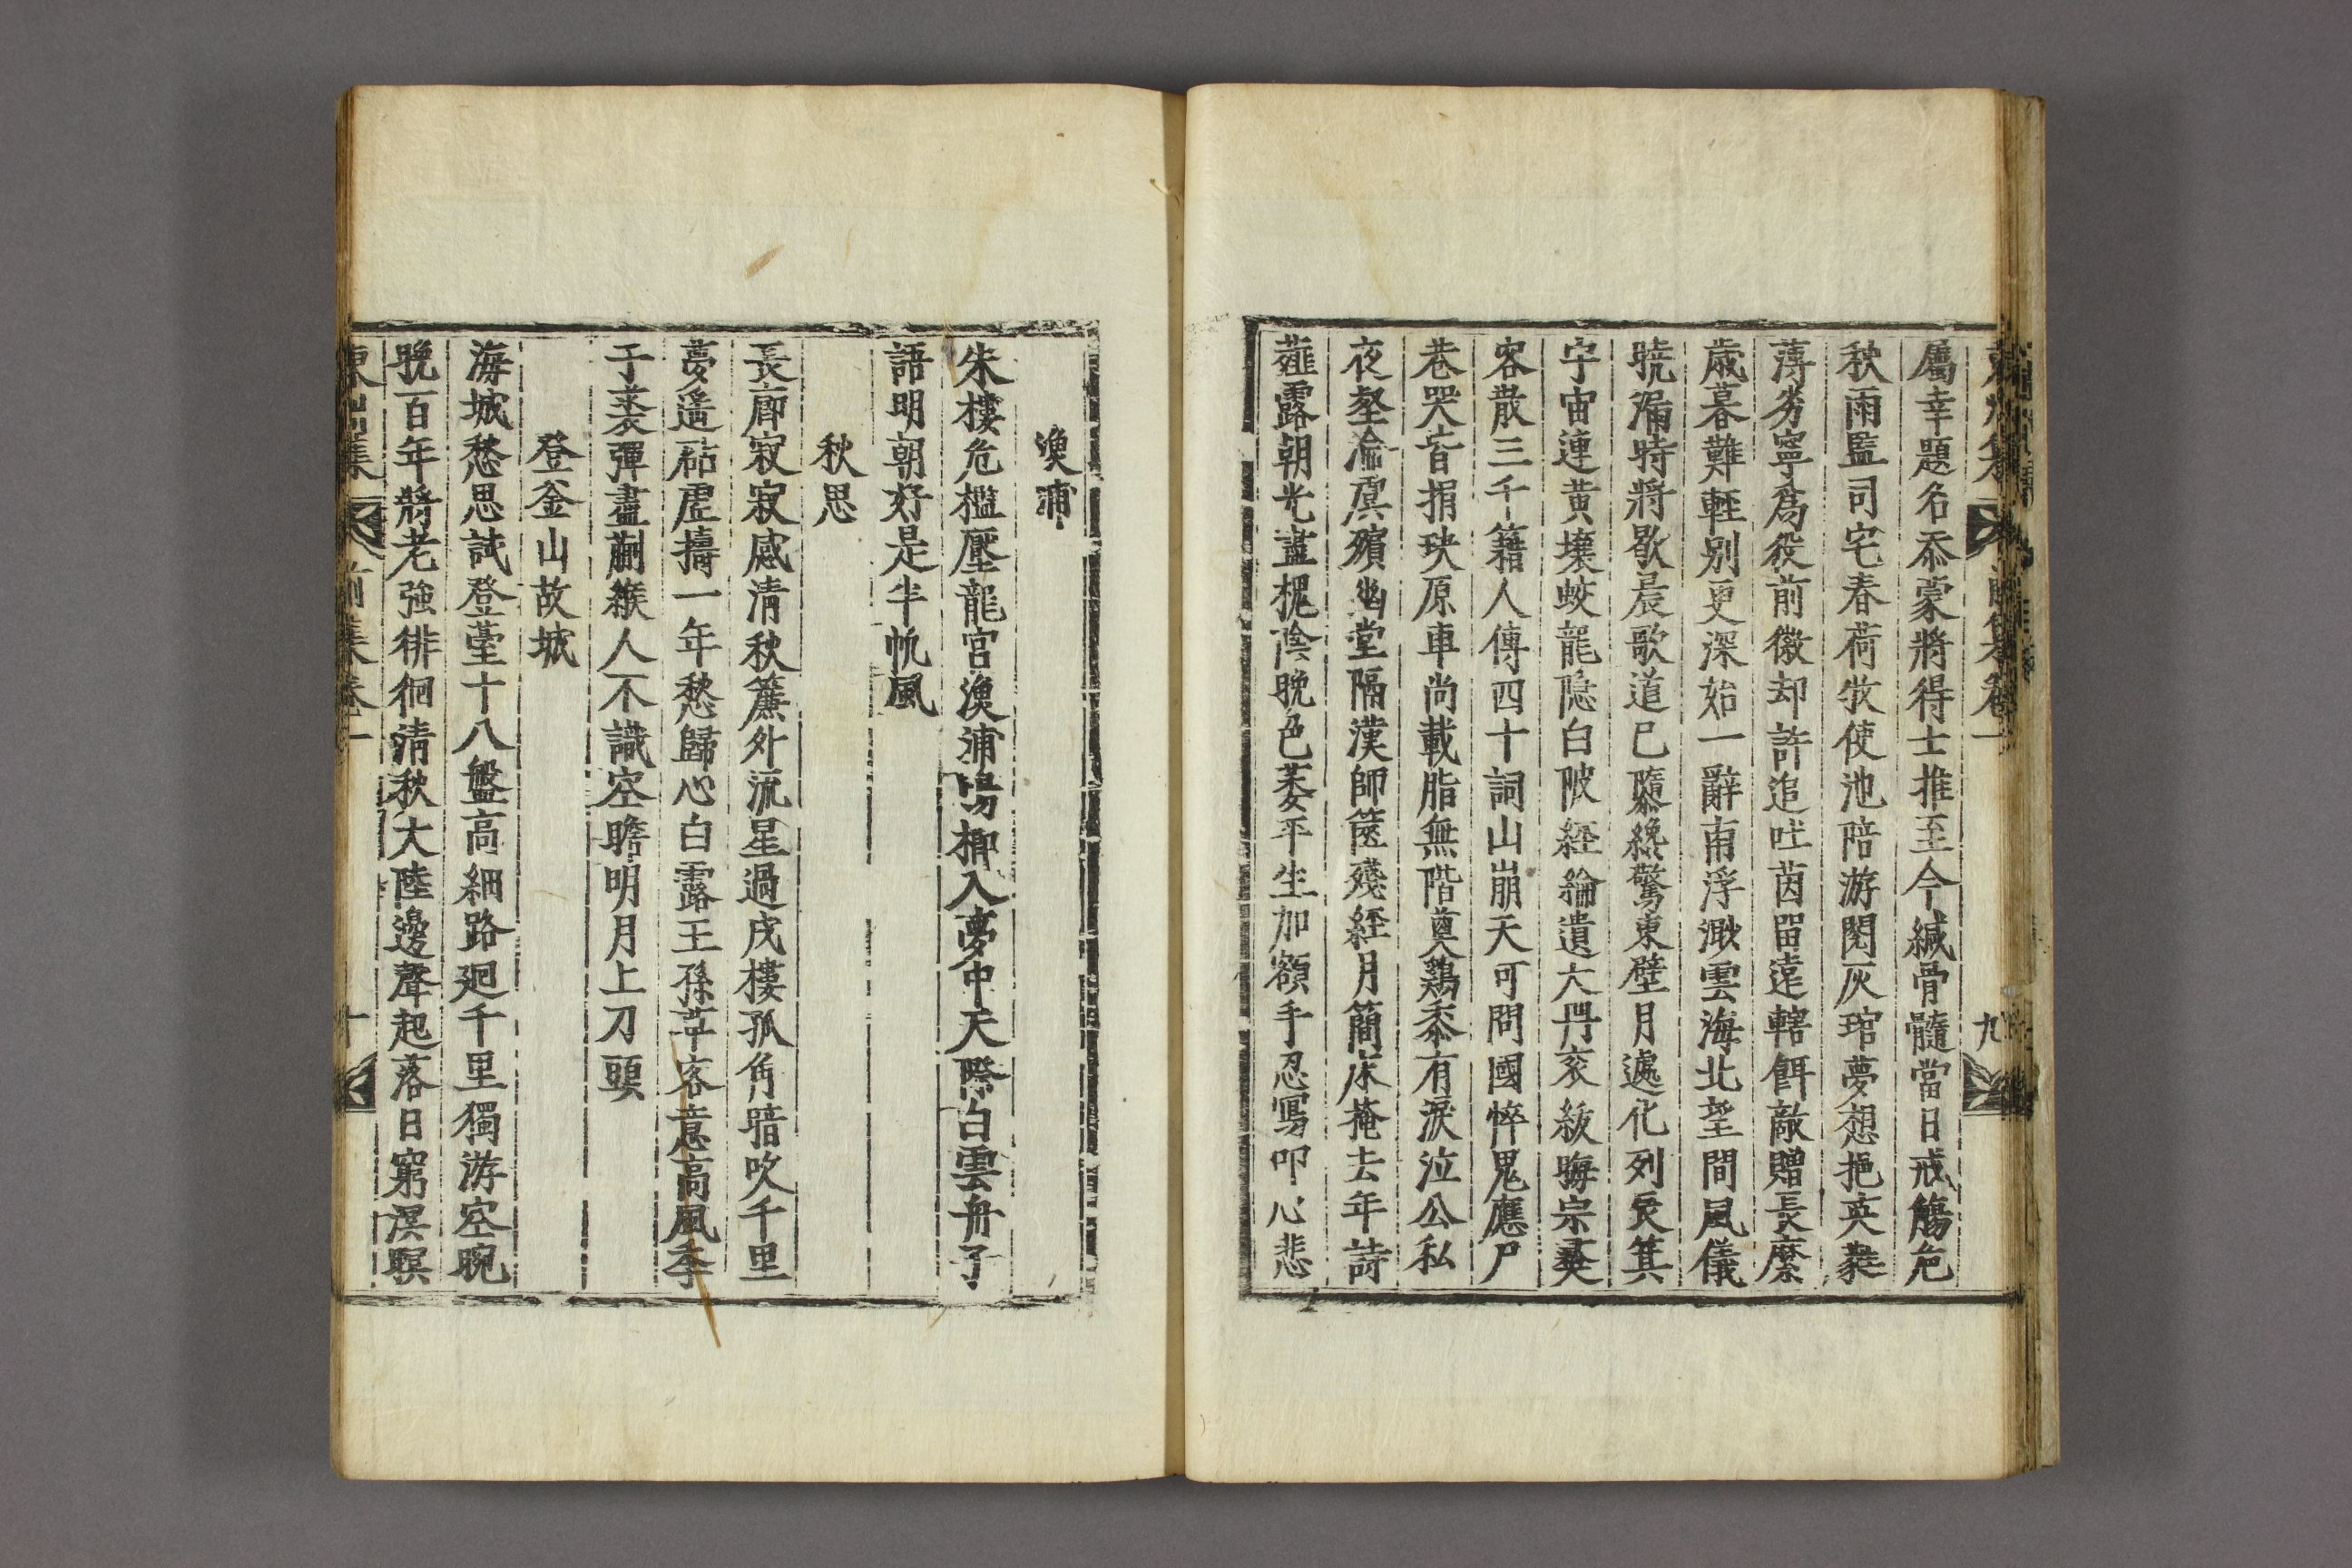 屬幸題名忝蒙將得士推至今緘骨髓當日戒觴危
秋雨監司宅春荷牧使池陪游閱灰琯夢想挹英蕤
薄劣寧爲役前徽却許追吐茵留遠轄餌敵贈長縻
歳暮難輕别更深始一辭南浮溵雲海北望間風儀
曉漏時將歇晨歌道已隳纔驚東壁月遽化列辰箕
宇宙連黄壤蛟龍隐白陂経綸遺大丹衮紱晦宗彛
客散三千籍人傳四十詞山崩天可問國悴鬼應尸
巷哭盲捐玦原車尚載脂無階奠鶏黍有淚泣公私
夜壑淪虞殯幽堂隔漢師篋殘経月簡床掩去年詩
薤露朝光盡槐陰晩色萎平生加額手忍寫叩心悲
九
漁浦
朱樓危檻壓龍宮漁浦鳴柳入夢中天際白雲舟子
語明朝好是半帆風
秋思
長廊寂寂感清秋簾外流星過戍樓孤角暗吹千里
夢遥砧虚擣一年愁歸心白露王孫草客意高風季
子裘彈盡蒯緱人不識空瞻明月上刀頭
登釜山故城
海城愁思試登臺十八盤高細路廻千里獨游空晼
晩百年將老強徘徊清秋大陸邊聲起落日窮溟暝
集 前集卷一 十